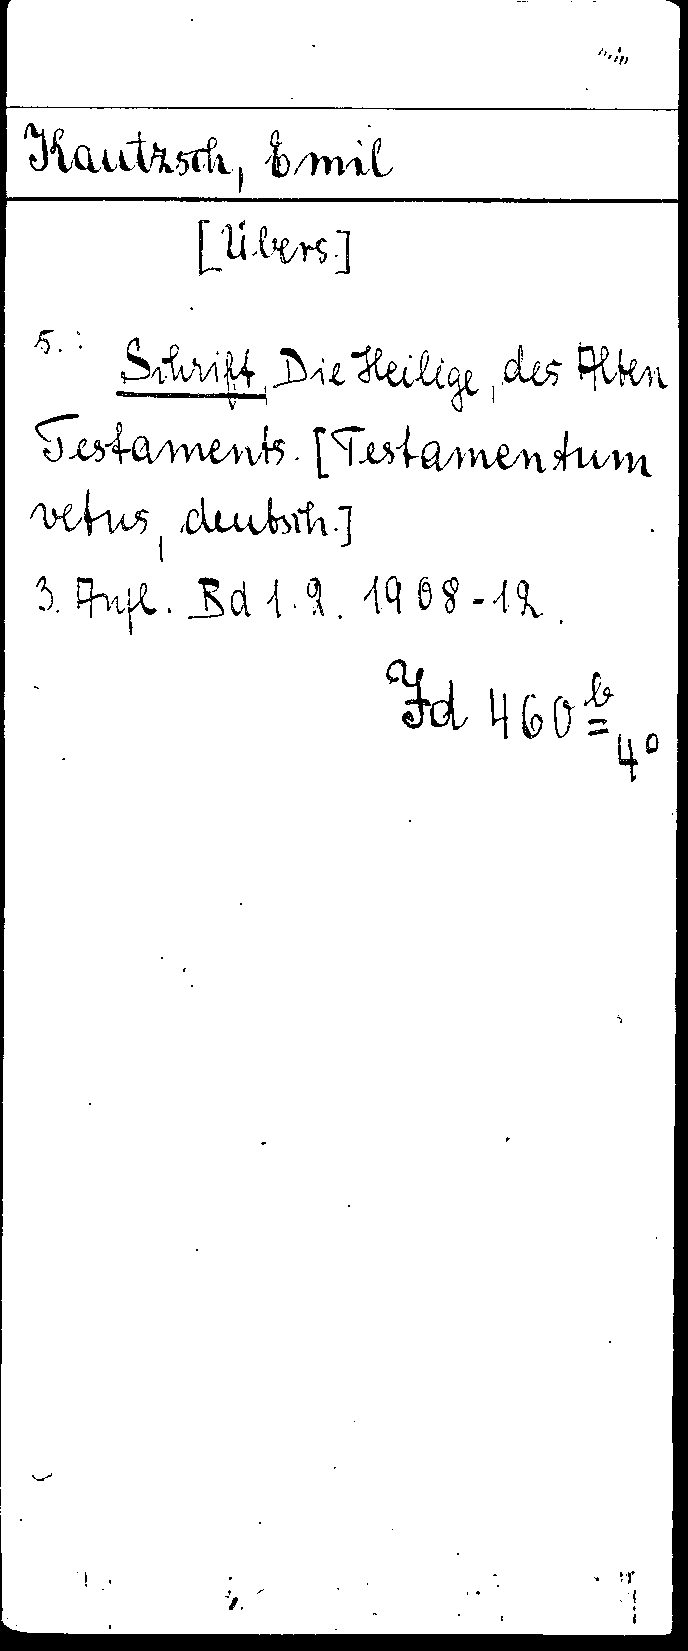 Kautzsch, Emil
[Übers.]
s.:
Schrift, Die Heilige, des Alten
Testaments. [Testamentum
vetus, deutsch.]
3. Aufl. Bd 1.2. 1908-12.
Id 460 b
4°